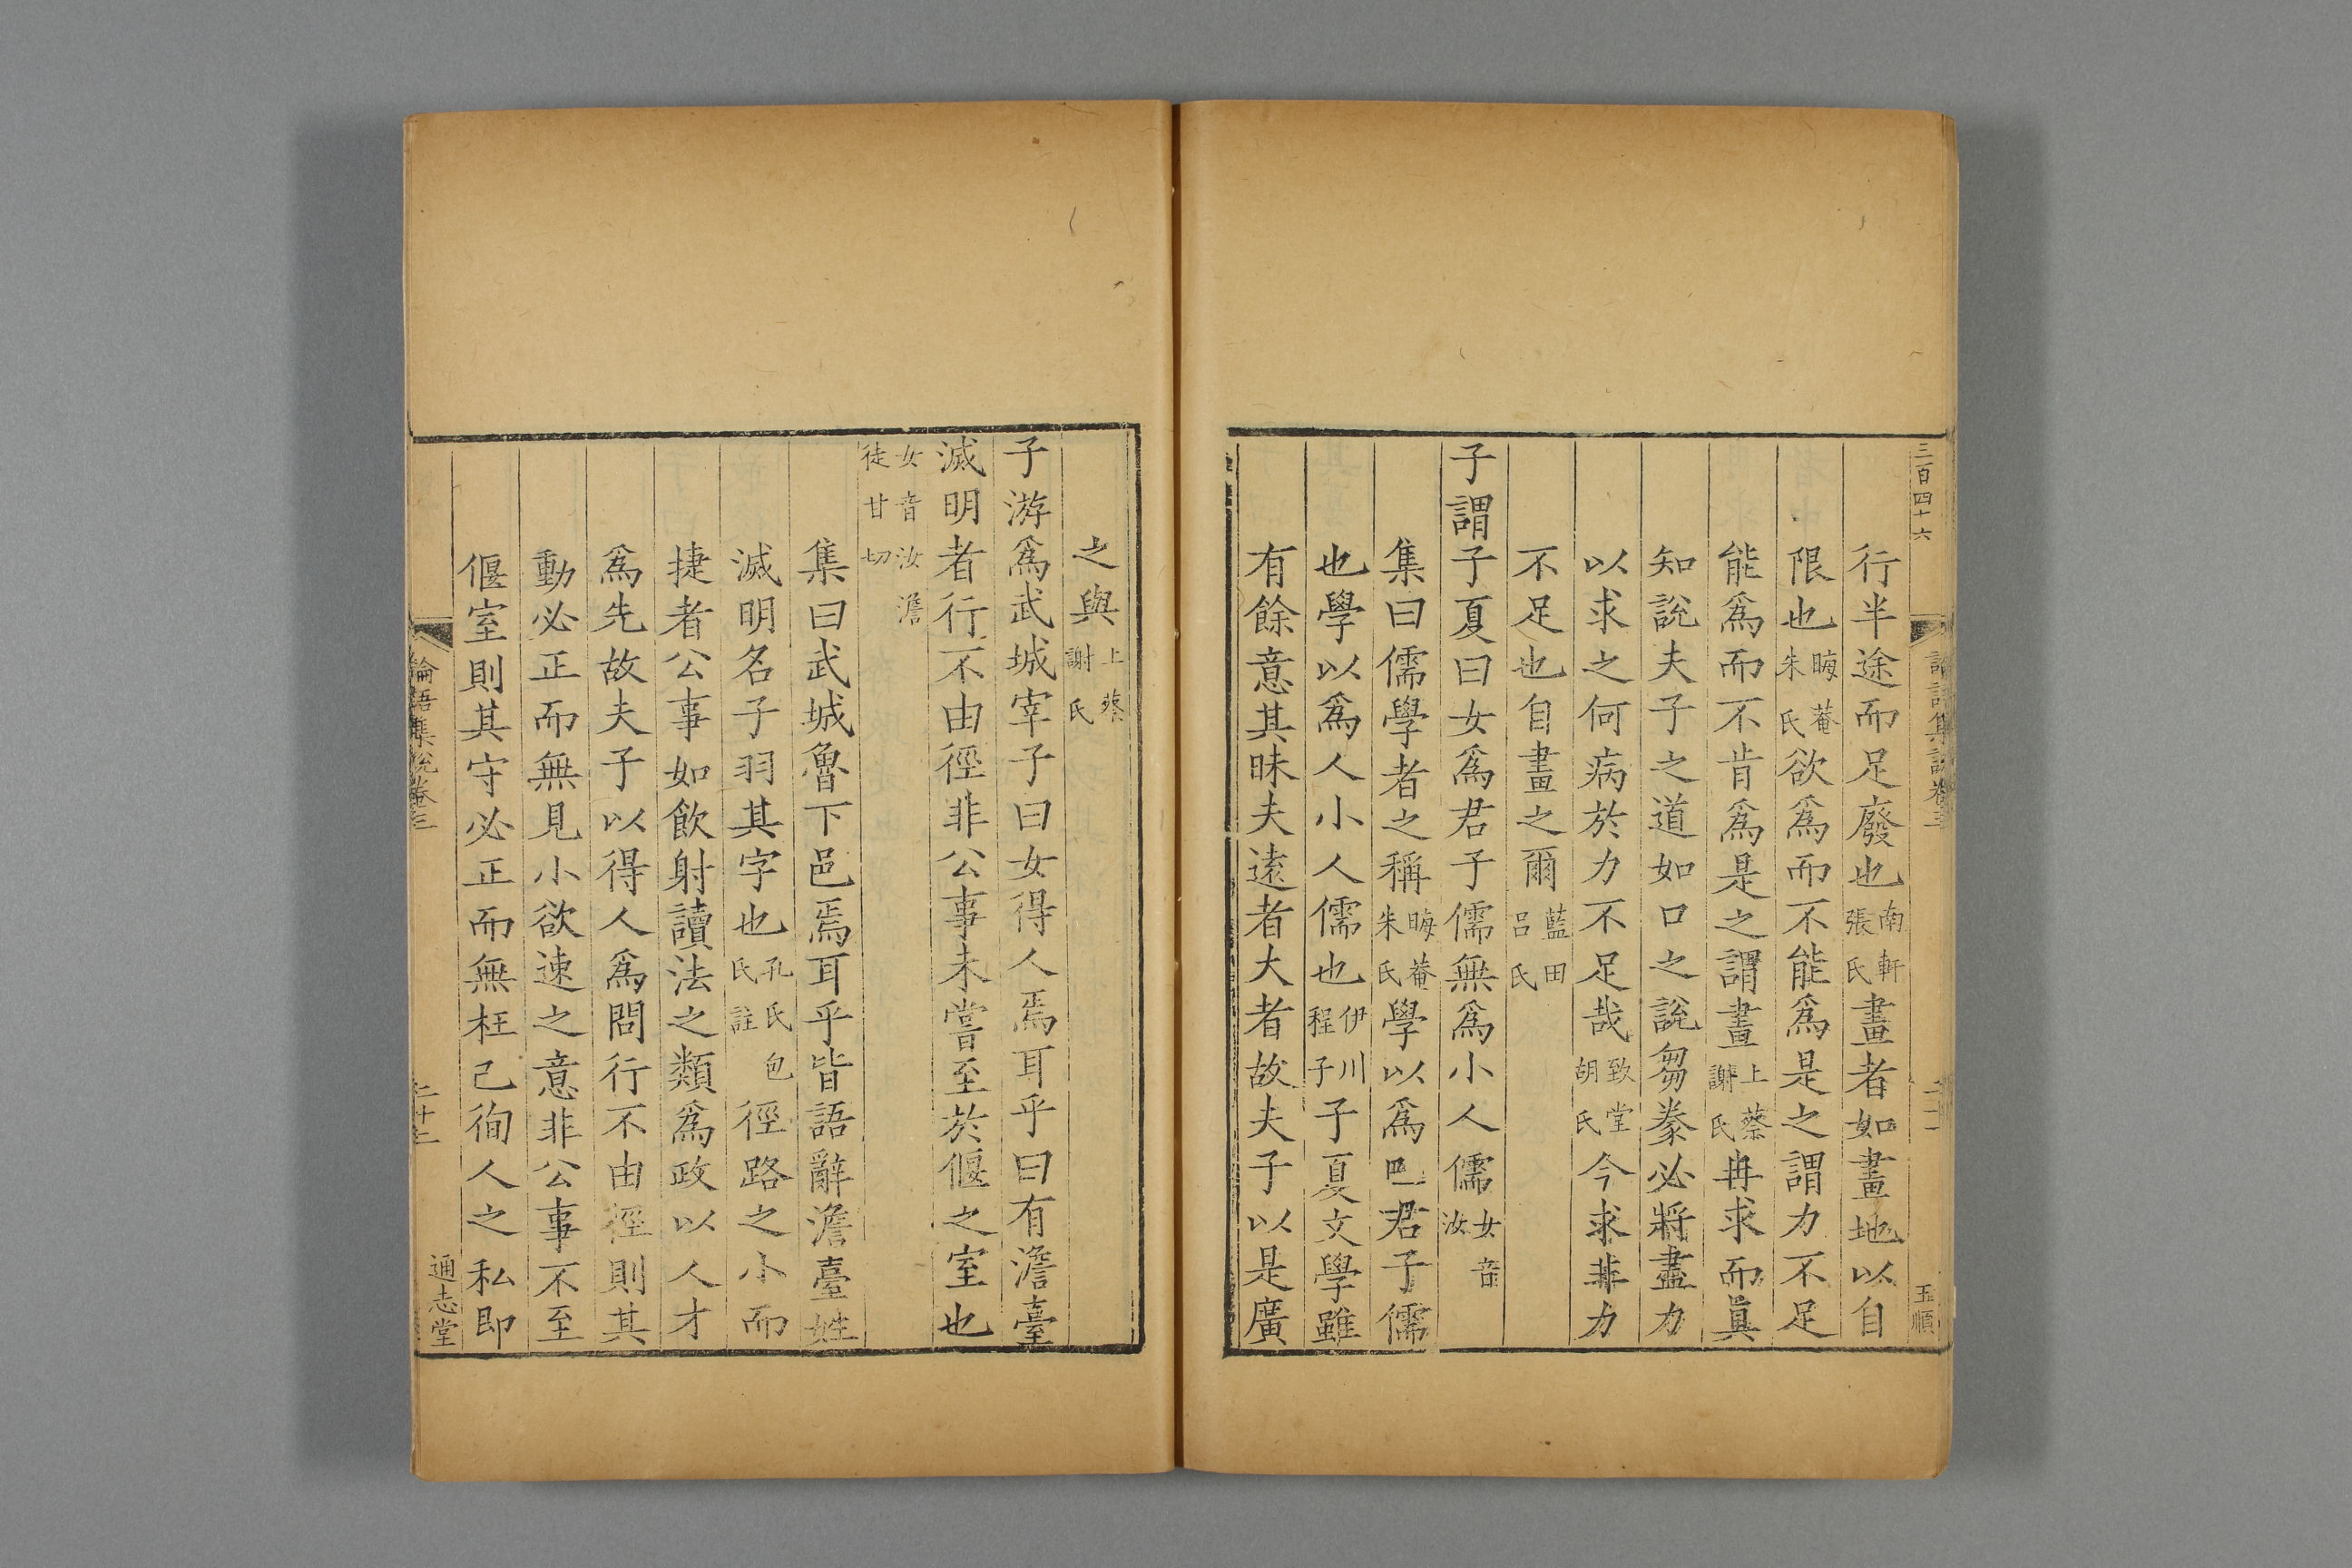 三百四十六
論語集說卷三
玉順
行半途而足廢也南軒張氏畫者如畫地以自
限也晦菴朱氏欲爲而不能爲是之謂力不足
能爲而不肯爲是之謂畫上蔡謝氏冉求而眞
知說夫子之道如口之說芻豢必將盡力
以求之何病於力不足哉致堂胡氏今求非力
不足也自畫之爾藍田呂氏
子謂子夏曰女爲君子儒無爲小人儒女音汝
集曰儒學者之稱晦菴朱氏學以爲己君子儒
也學以爲人小人儒也伊川程子子夏文學雖
有餘意其昧夫遠者大者故夫子以是廣
之與上蔡謝氏
子游爲武城宰子曰女得人焉耳乎曰有澹臺
滅明者行不由徑非公事未嘗至於偃之室也
女音汝澹徒甘切
集曰武城魯下邑焉耳乎皆語辭澹臺姓
滅明名子羽其字也孔氏包氏註徑路之小而
捷者公事如飲射讀法之類爲政以人才
爲先故夫子以得人爲問行不由徑則其
動必正而無見小欲速之意非公事不至
偃室則其守必正而無枉己徇人之私即
論語集說卷三
二十二
通志堂